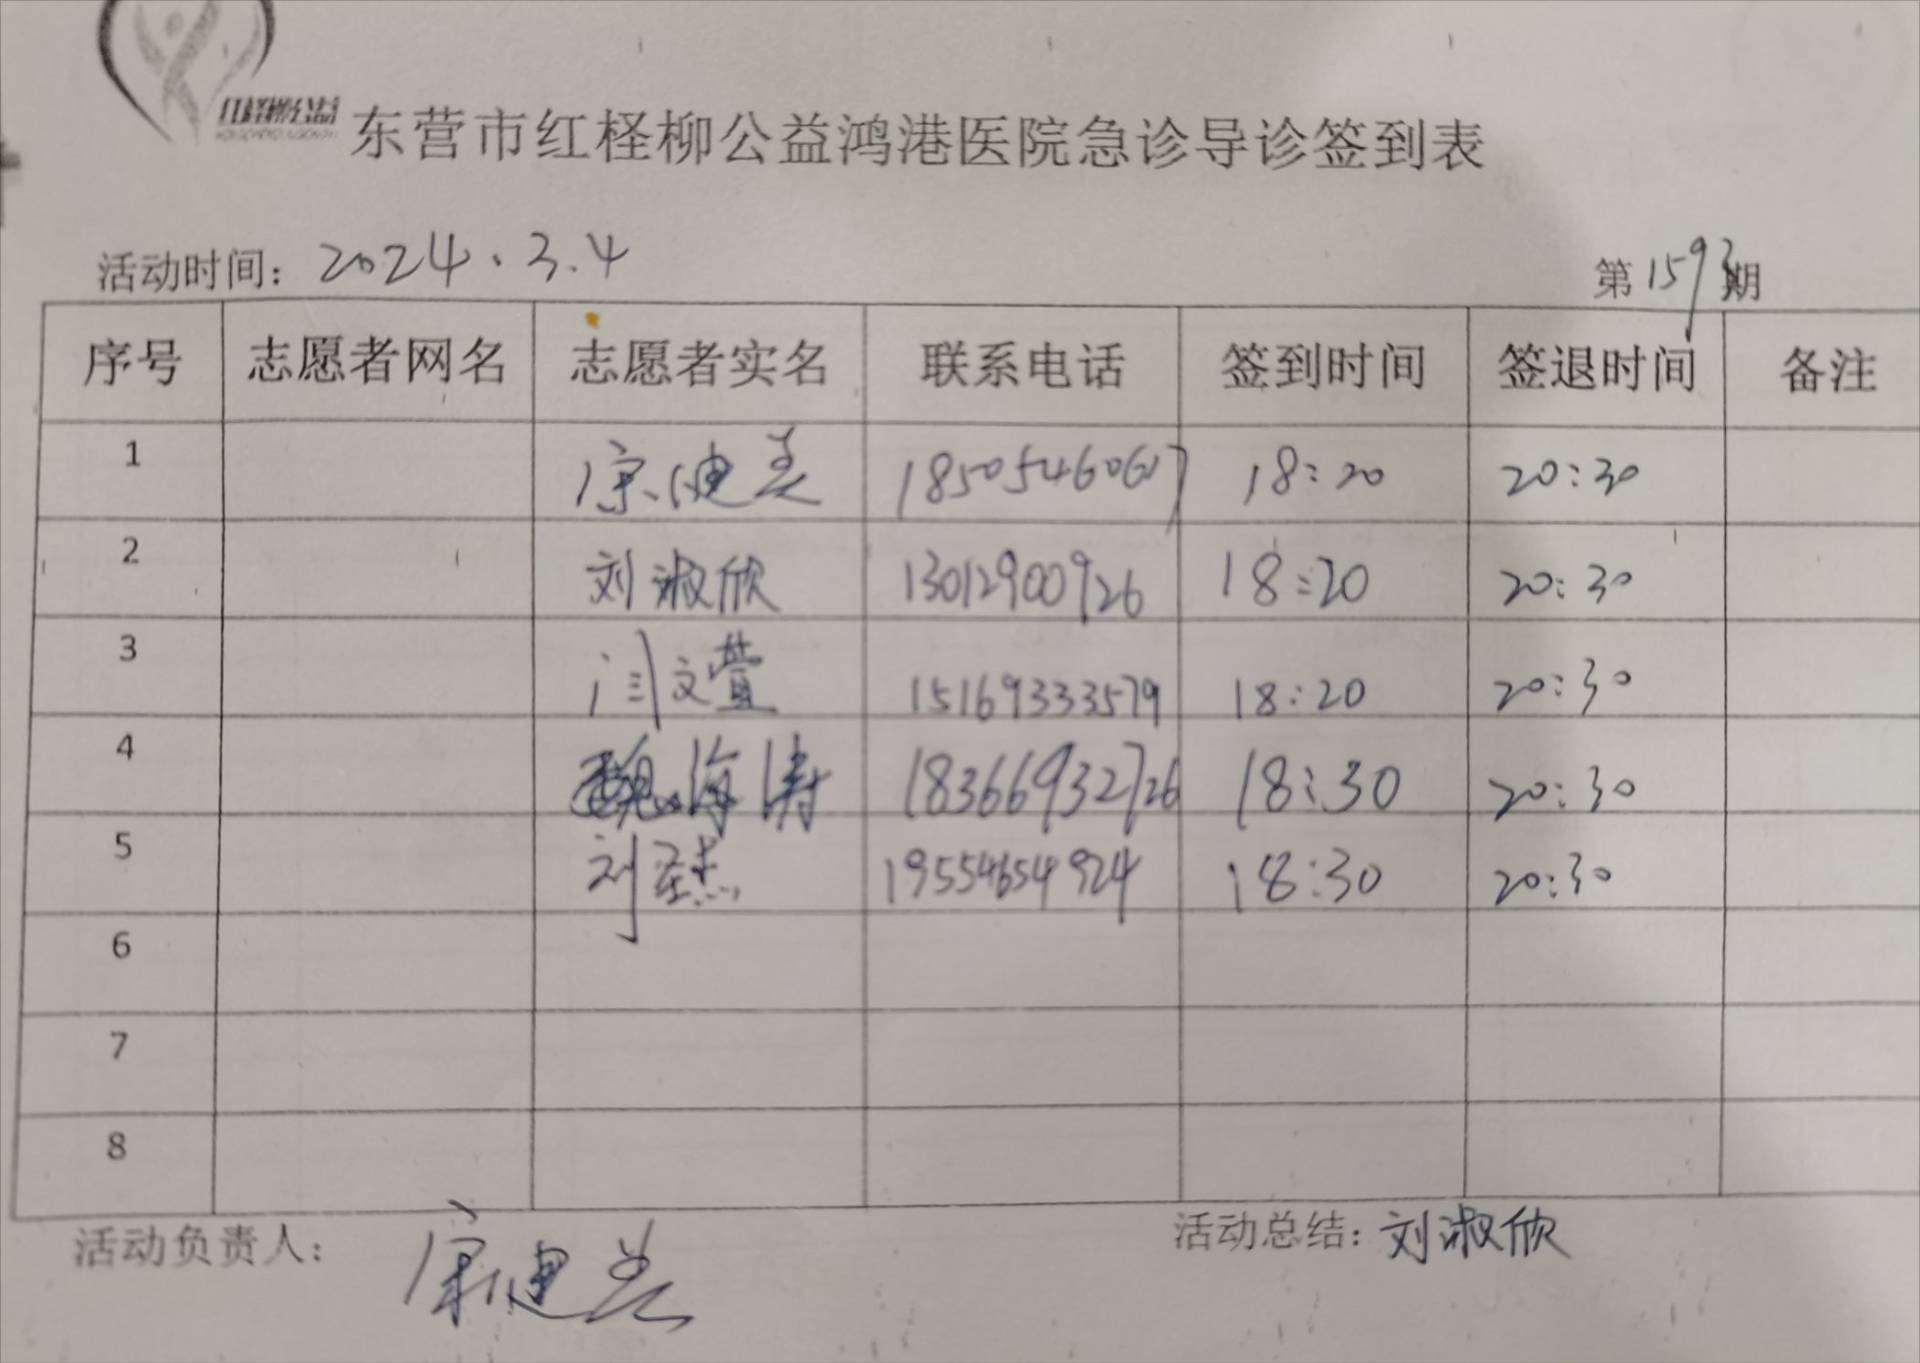 红柽柳公益
东营市红柽柳公益鸿港医院急诊导诊签到表
活动时间：2024.3.4 第1593期
序号 志愿者网名 志愿者实名 联系电话 签到时间 签退时间 备注
1 18505460617 18:20 20:30
2 刘淑欣 13012900926 18:20 20:30
3 闫文萱 15169333579 18:20 20:30
4 魏海涛 18366932726 18:30 20:30
5 刘圣杰 19554654924 18:30 20:30
6
7
8
活动负责人： 活动总结：刘淑欣